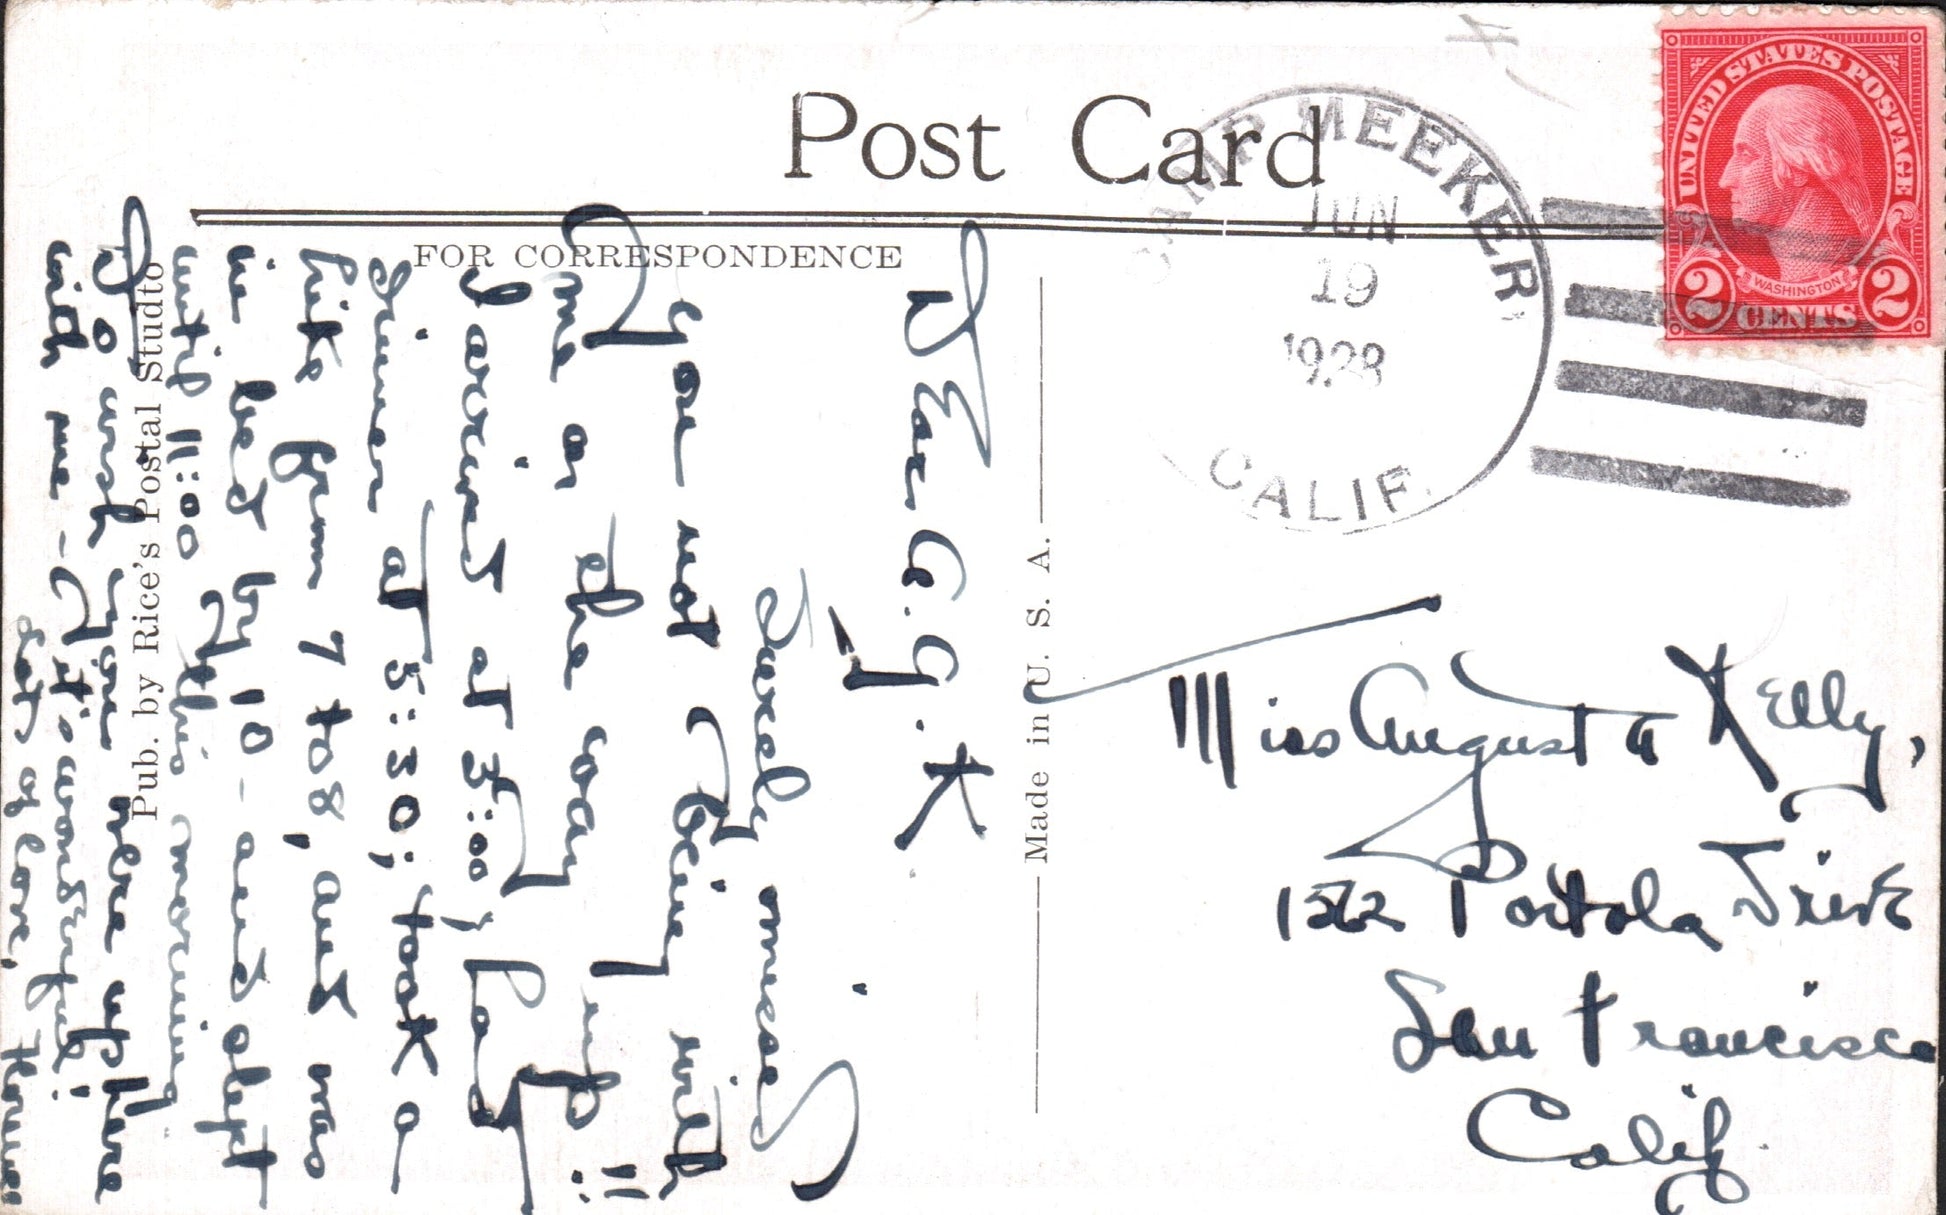 Post Card
FOR CORRESPONDENCE
CAMP MEEKER
JUN
19
1928
CALIF.
UNITED STATES POSTAGE
WASHINGTON
2 CENTS 2
Dear A. G. K
Surely missed
you not being with
me on the way up!!
I arrived at 3:00; had
dinner at 5:30; took a
hike from 7 to 8, and was
in bed by 10 - and slept
until 11:00 this morning
I do wish you were up here
with me - it's wonderful!
Lots of love,
Made in U. S. A.
Pub. by Rice's Postal Studio
Miss Augusta Kelly,
1562 Portola Drive
San Francisco
Calif.